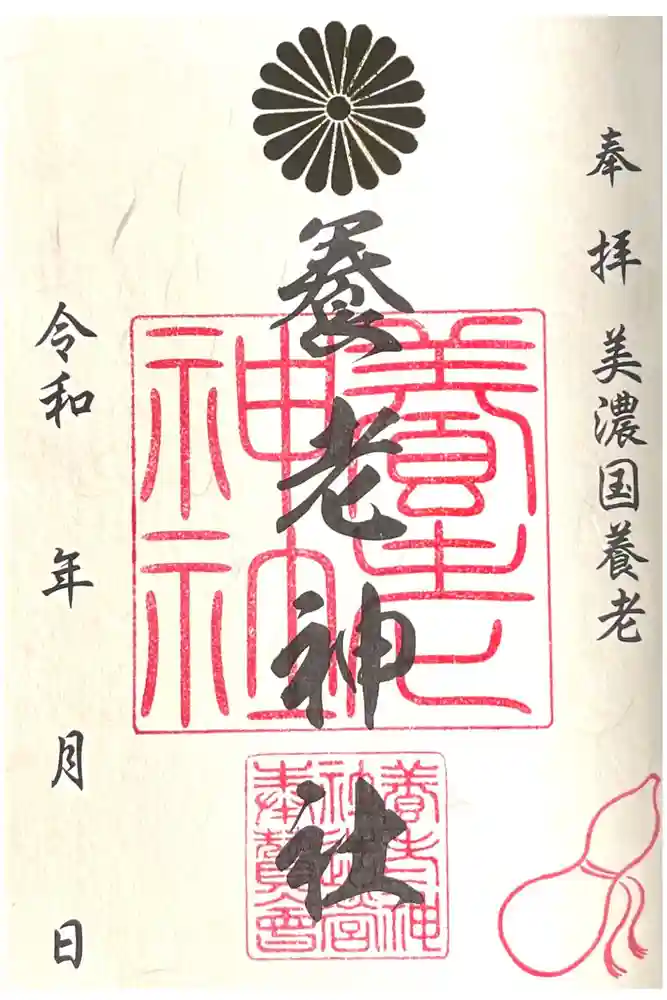 奉拝 美濃国養老
養老神社
養老神社
養老神社造営奉賛會
令和 年 月 日